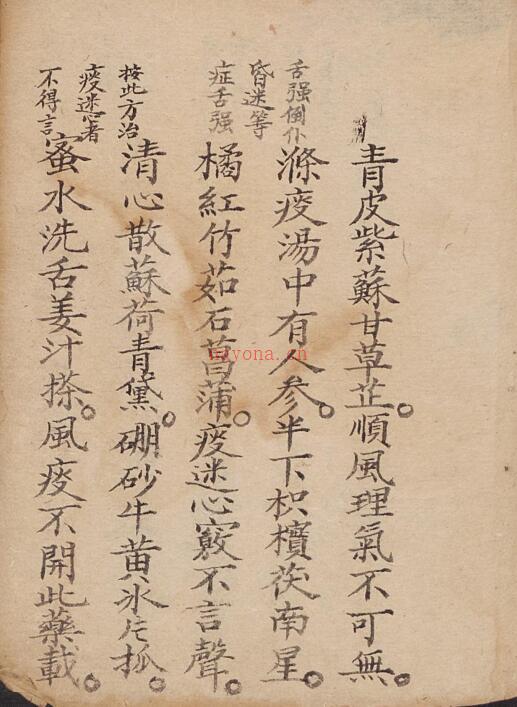 青皮紫蘇甘草芷。順風理氣不可無。
舌强倒仆
滌痰湯中有人參。半下枳檳茯南星。
昏迷等
症舌强
橘紅竹茹石菖蒲。痰迷心竅不言聲。
按此方治
清心散蘇荷青黛。硼砂牛黃冰片抓。
痰迷心者
不得言
蜜水洗舌姜汁搽。風痰不開此藥載。
nayona.cn